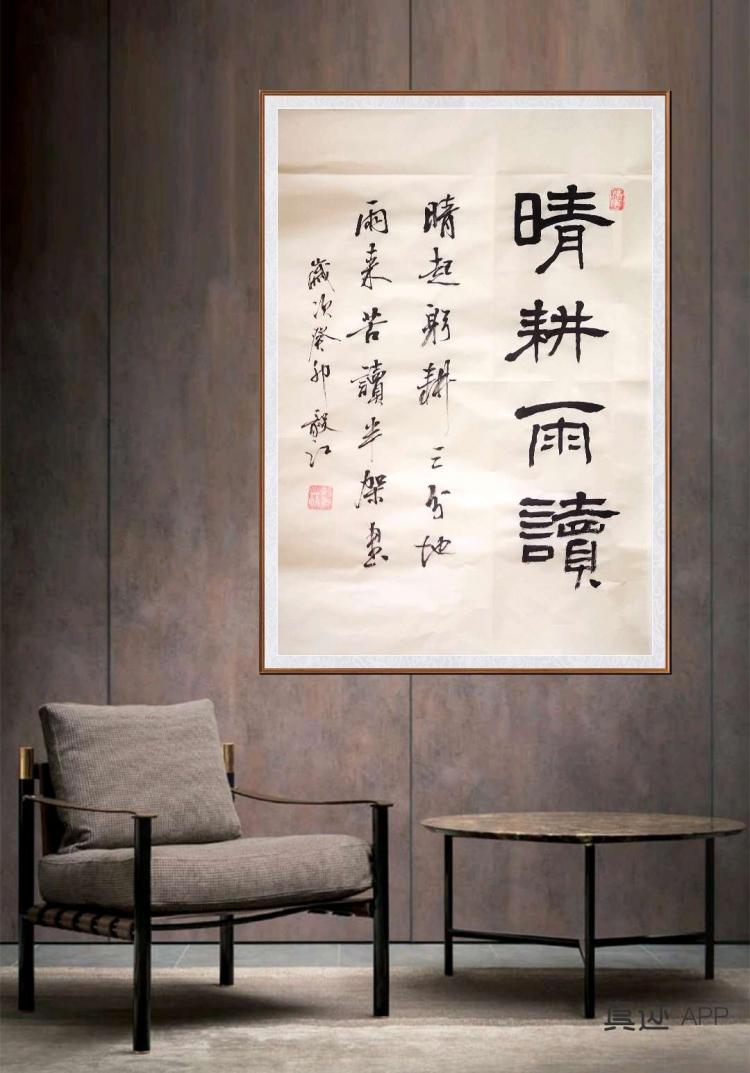 晴耕雨讀
晴起躬耕三分地
雨来苦讀半架书
歲次癸卯 毅江
真迹 APP